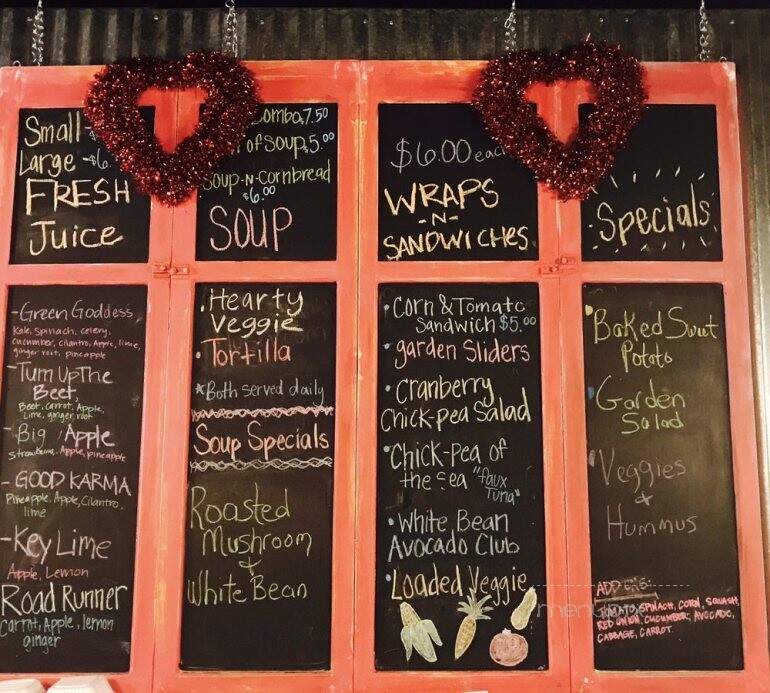 Small
Large - $6.
FRESH
Juice
-Green Goddess
Kale, Spinach, celery,
Cucumber, cilantro, Apple, lime,
ginger root, pineapple
-Turn Up The
Beet,
Beet, Carrot, Apple,
Lime, ginger root
-Big Apple
Apple, pineapple
- GOOD KARMA
Pineapple, Apple, Cilantro,
lime
-Key Lime
Apple, Lemon
Road Runner
Carrot, Apple, lemon
ginger
Comba 7.50
of Soup, 5.00
Soup-N-Cornbread
$6.00
SOUP
• Hearty
Veggie
• Tortilla
*Both served daily
Soup Specials
Roasted
Mushroom
&
White Bean
$6.00 eac
WRAPS
-N-
SANDWICHES
• Corn & Tomato
Sandwich $5.00
• garden Sliders
• Cranberry
Chick-pea Salad
• Chick-Pea of
the Sea "faux
Tuna"
• White Bean
Avocado Club
• Loaded Veggie
Specials
• Baked Sweet
Potato
• Garden
Salad
• Veggies
&
Hummus
ADD ONS:
TOMATO, SPINACH, CORN, SQUASH,
RED ONION, CUCUMBER, AVOCADO,
CABBAGE, CARROT